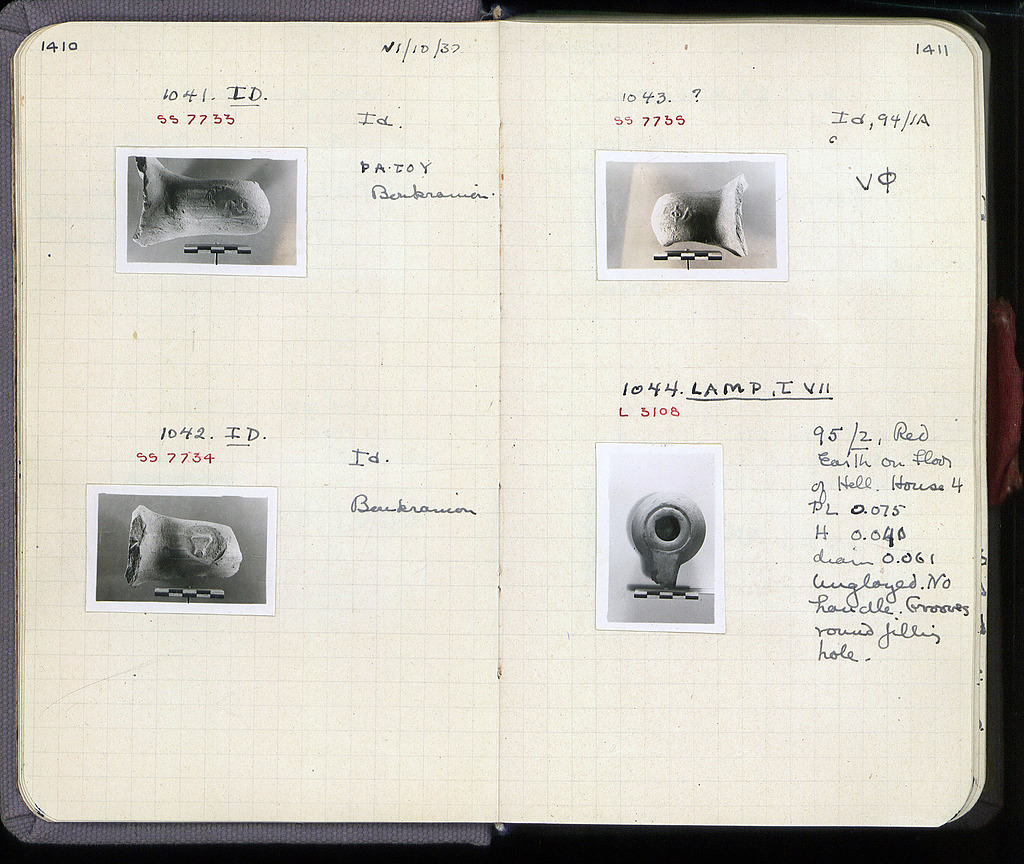 1410
VI/10/37
1041. ID.
SS 7733
Id.
PA·TOY
Boukranion.
1042. ID.
SS 7734
Id.
Boukranion
1411
1043. ?
SS 7735
Id, 94/1A
VΦ
1044. LAMP, I VII
L 3108
95/2, Red
Earth on Floor
of Hell. House 4
PL 0.075
H 0.040
diam 0.061
Unglazed. No
handle. Grooves
round filling
hole.